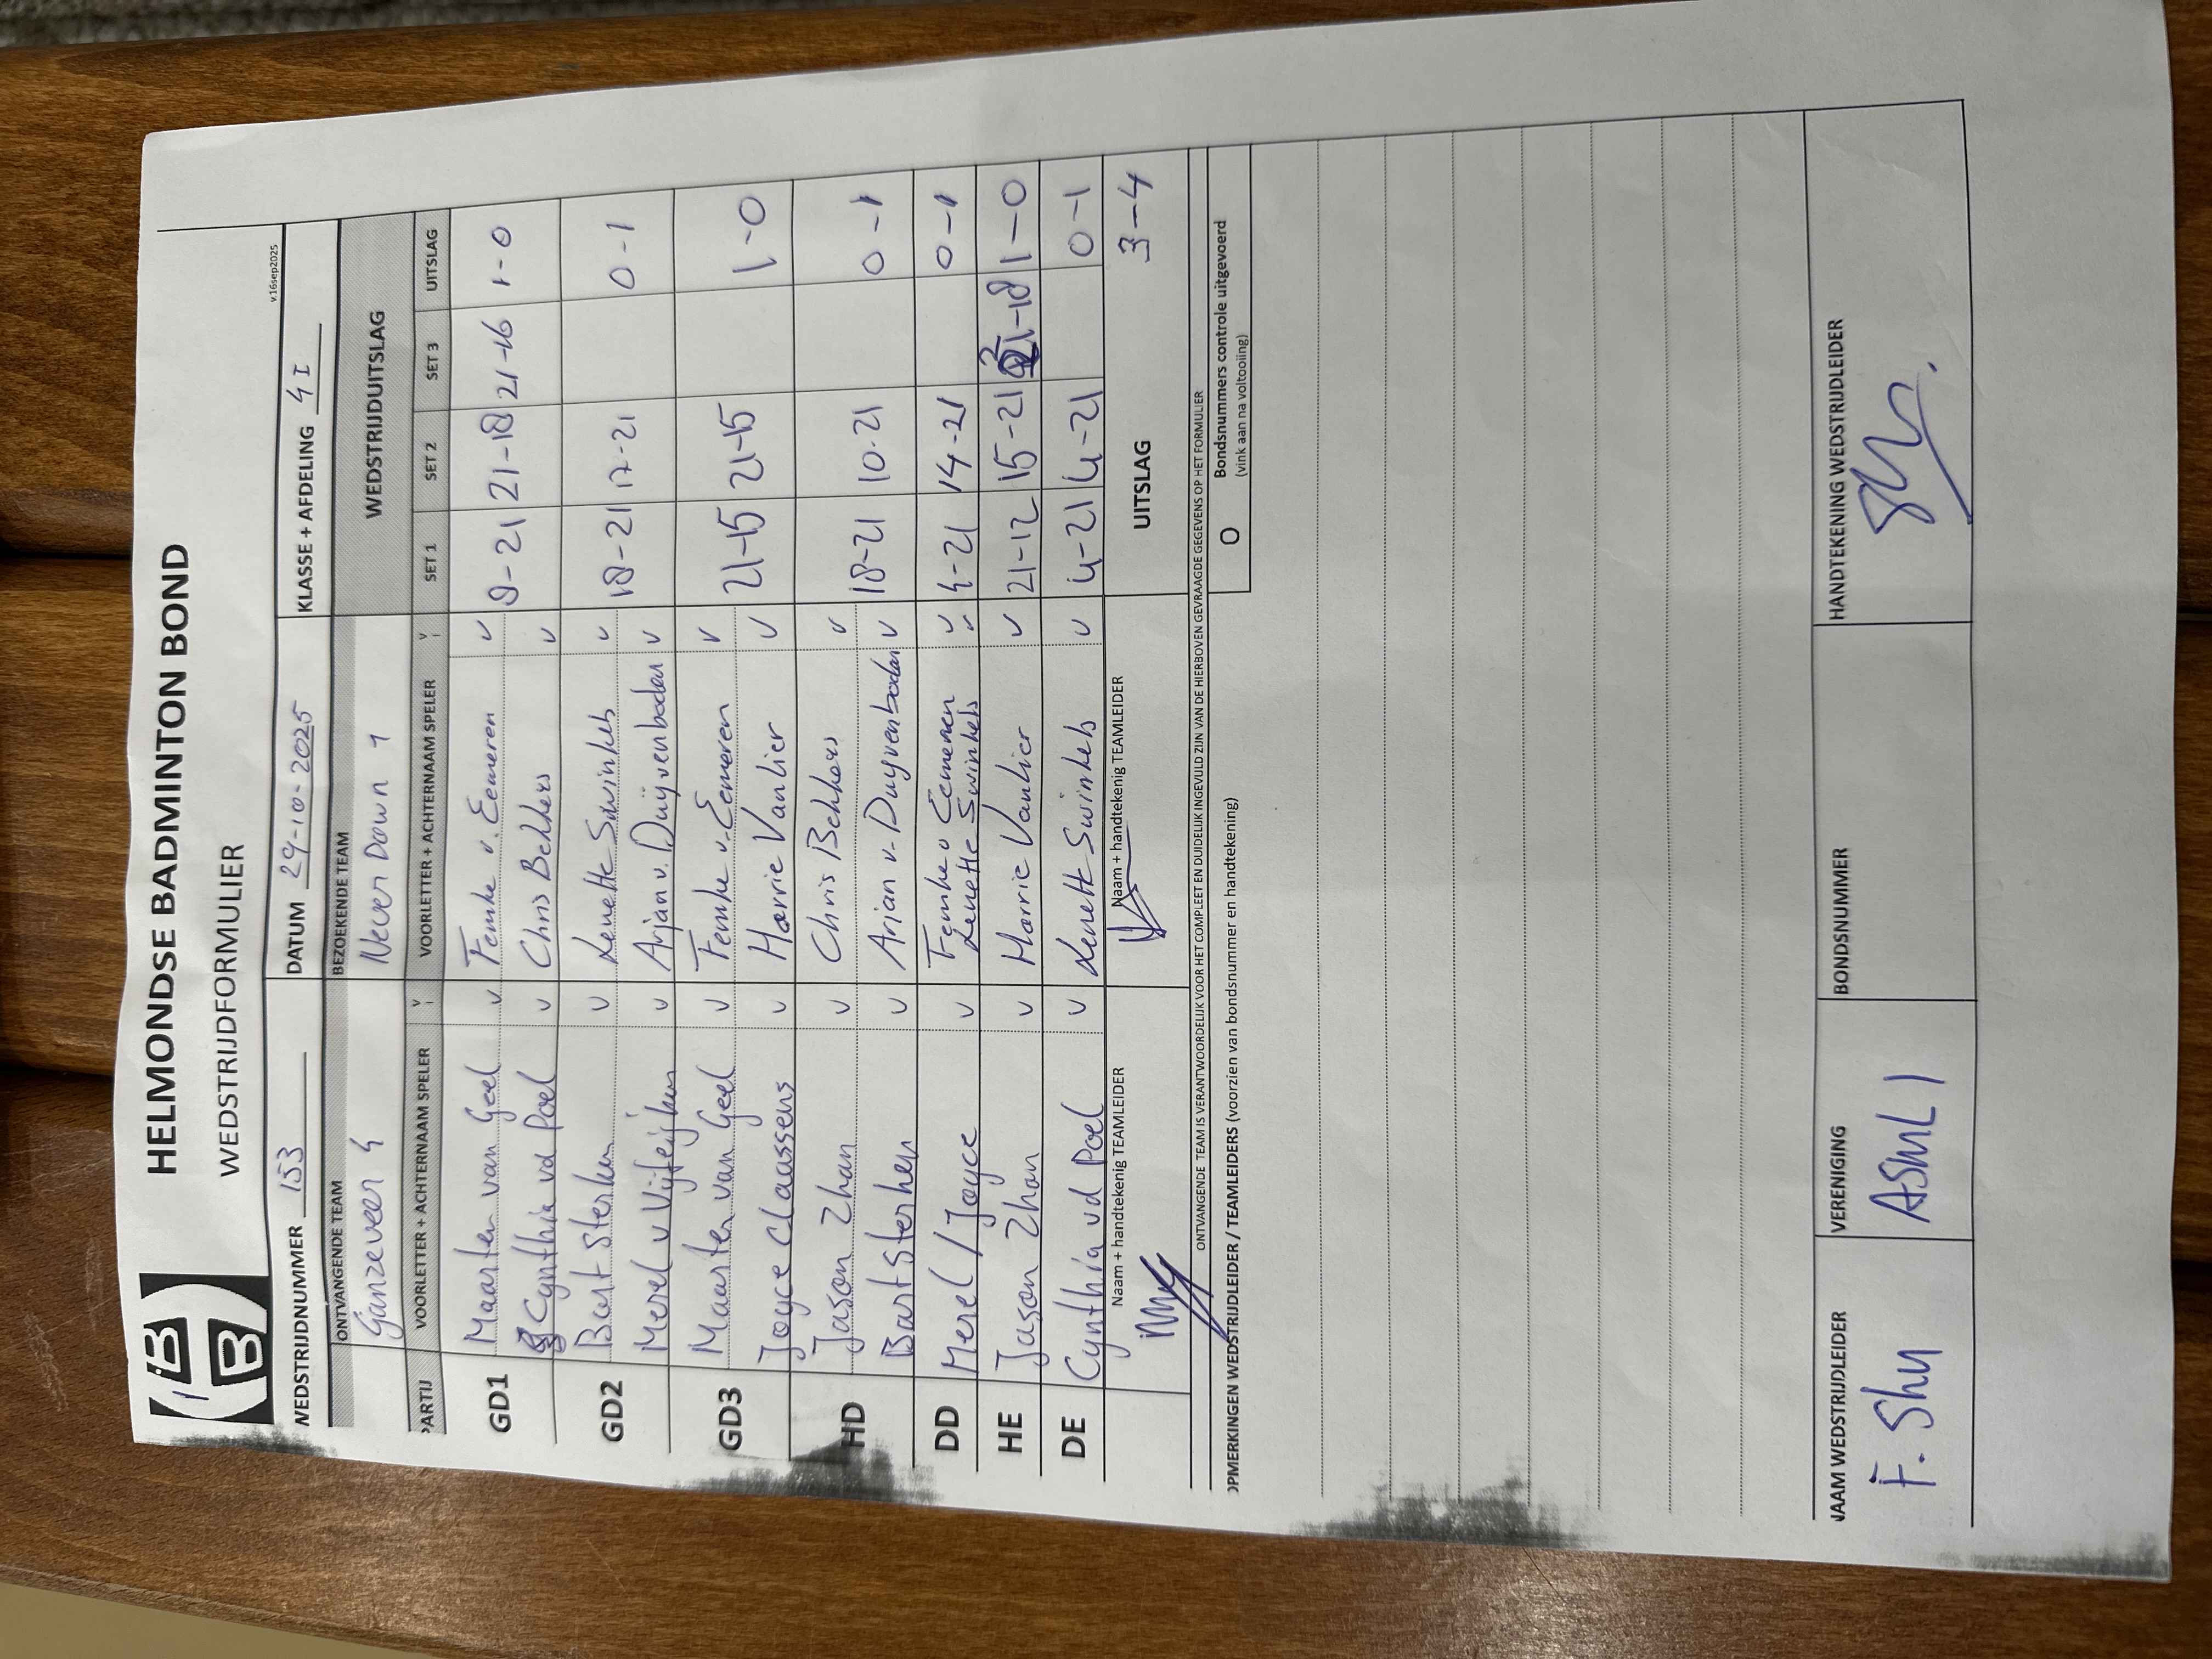 HELMONDSE BADMINTON BOND
WEDSTRIJDFORMULIER
v.16sep2025
WEDSTRIJDNUMMER 153 DATUM 29-10-2025 KLASSE + AFDELING 4I
ONTVANGENDE TEAM BEZOEKENDE TEAM WEDSTRIJDUITSLAG
Ganzeveer 4 Never Down 1
PARTIJ VOORLETTER + ACHTERNAAM SPELER V VOORLETTER + ACHTERNAAM SPELER V SET 1 SET 2 SET 3 UITSLAG
GD1 Maarten van Geel v Femke v. Eemeren v 9-21 21-18 21-16 1-0
Cynthia vd Poel v Chris Bekkers v
GD2 Bart Sterken v Lenette Swinkels v 18-21 17-21 0-1
Merel v Vijfeijken v Arjan v. Duijvenboden v
GD3 Maarten van Geel v Femke v. Eemeren v 21-15 21-15 1-0
Joyce Claassens v Harrie Vanlier v
HD Jason Zhan v Chris Bekkers v 18-21 10-21 0-1
Bart Sterken v Arjan v. Duyvenboden v
DD Merel / Joyce v Femke v Eemeren v 4-21 14-21 0-1
Lenette Swinkels v
HE Jason Zhan v Harrie Vanlier v 21-12 15-21 21-18 1-0
DE Cynthia vd Poel v Lenette Swinkels v 4-21 4-21 0-1
Naam + handtekenig TEAMLEIDER Naam + handtekenig TEAMLEIDER UITSLAG 3-4
ONTVANGENDE TEAM IS VERANTWOORDELIJK VOOR HET COMPLEET EN DUIDELIJK INGEVULD ZIJN VAN DE HIERBOVEN GEVRAAGDE GEGEVENS OP HET FORMULIER
OPMERKINGEN WEDSTRIJDLEIDER / TEAMLEIDERS (voorzien van bondsnummer en handtekening) O Bondsnummers controle uitgevoerd
(vink aan na voltooiing)
NAAM WEDSTRIJDLEIDER VERENIGING BONDSNUMMER HANDTEKENING WEDSTRIJDLEIDER
F. Shu ASML 1